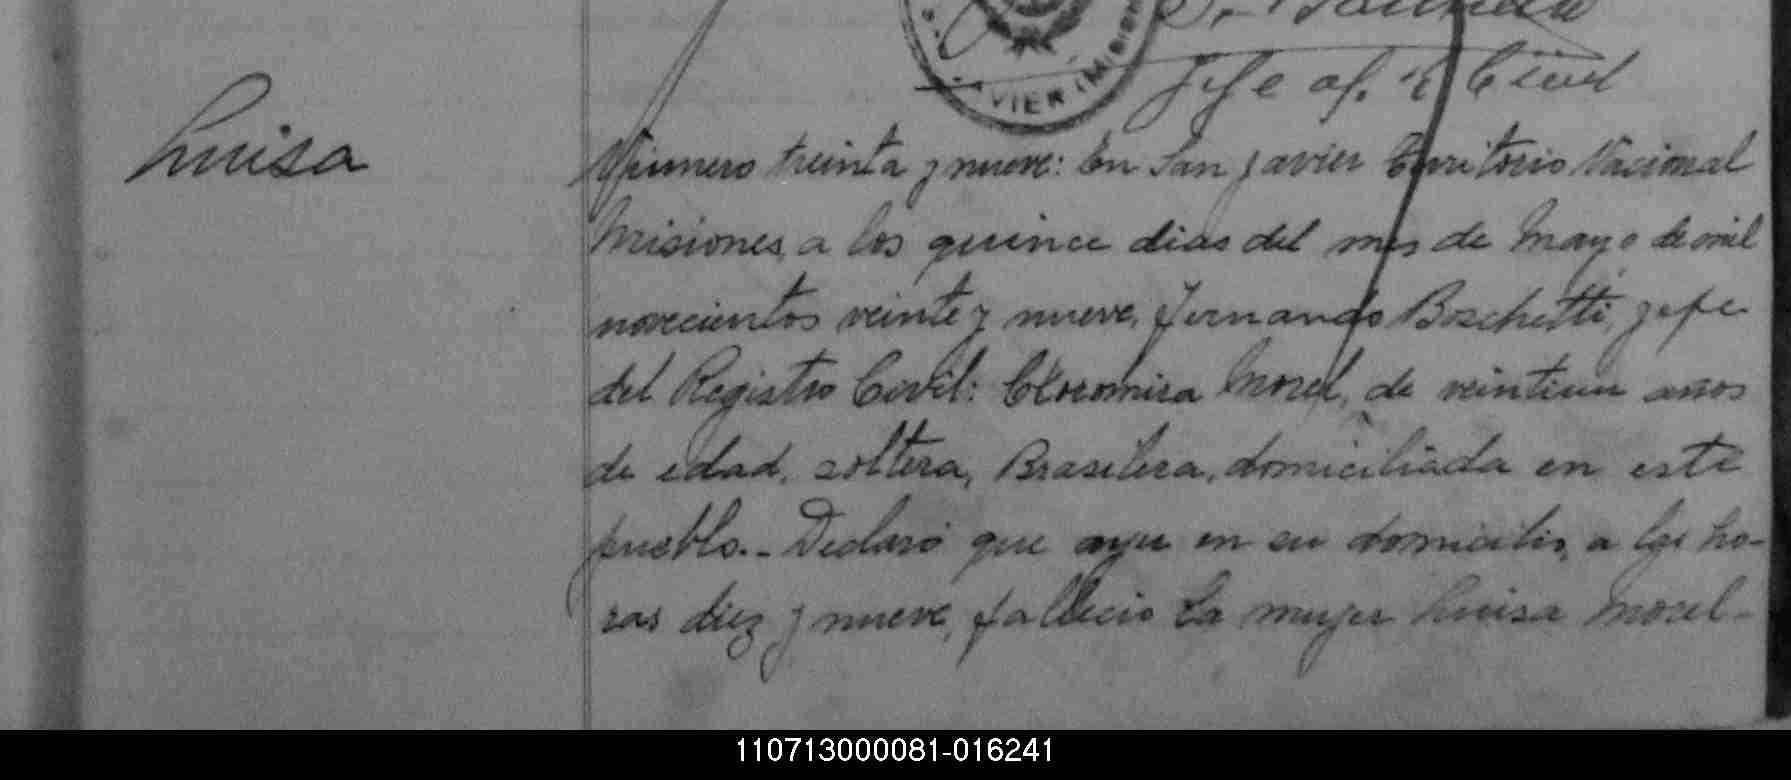 Jefe of. R. Civil
AVIER (MISION
Luisa
Número treinta y nueve: En San Javier Territorio Nacional
Misiones, a los quince dias del mes de Mayo de mil
novecientos veinte y nueve, Fernando Boschetti, jefe
del Registro Civil: Cloromira Morel, de veintiun años
de edad, soltera, Brasilera, domiciliada en este
pueblo.- Declaró que ayer en su domicilio, a las ho-
ras diez y nueve, fallecio la mujer Luisa Morel-
110713000081-016241